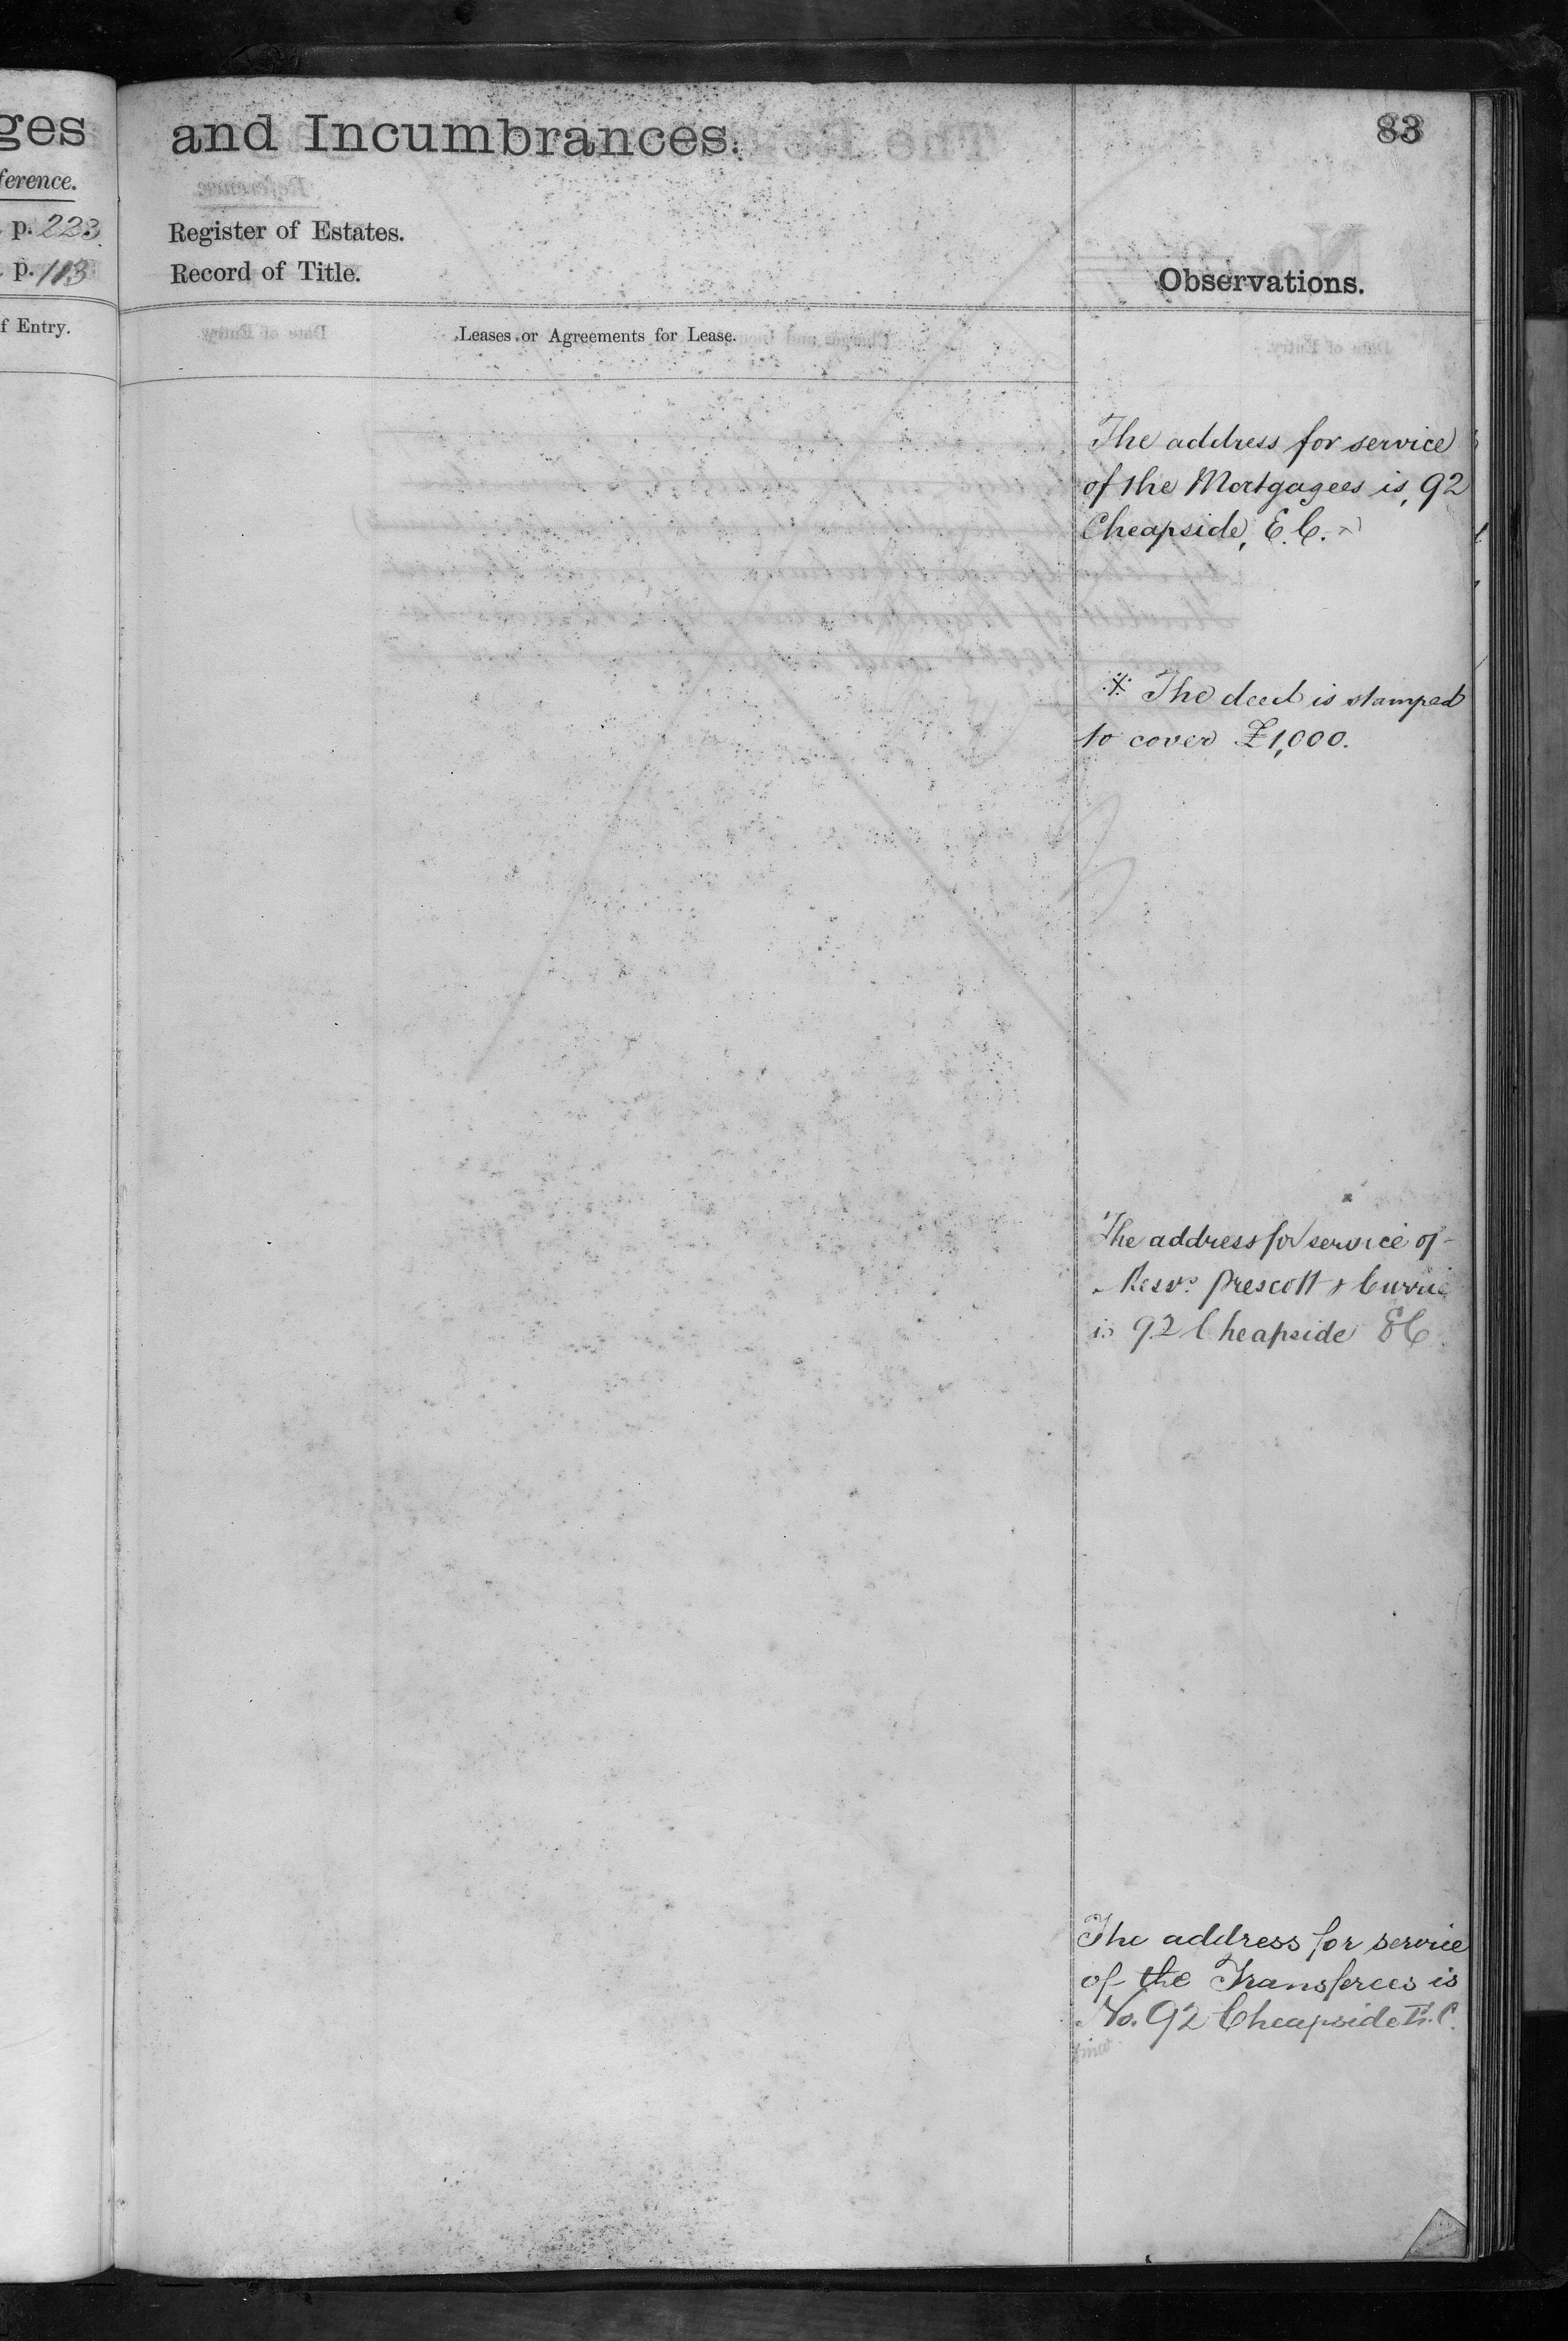 ges
ference.
p. 223
p. 113
f Entry.
and Incumbrances.
83
Register of Estates.
Record of Title.
Observations.
Leases or Agreements for Lease.
The address for service
of the Mortgagees is, 92
Cheapside, E.C.
The deed is stamped
to cover £1,000.
The address for service of
Prescott & Currie
is 92 Cheapside EC
The address for service
of the Transferees is
No. 92 Cheapside E.C.